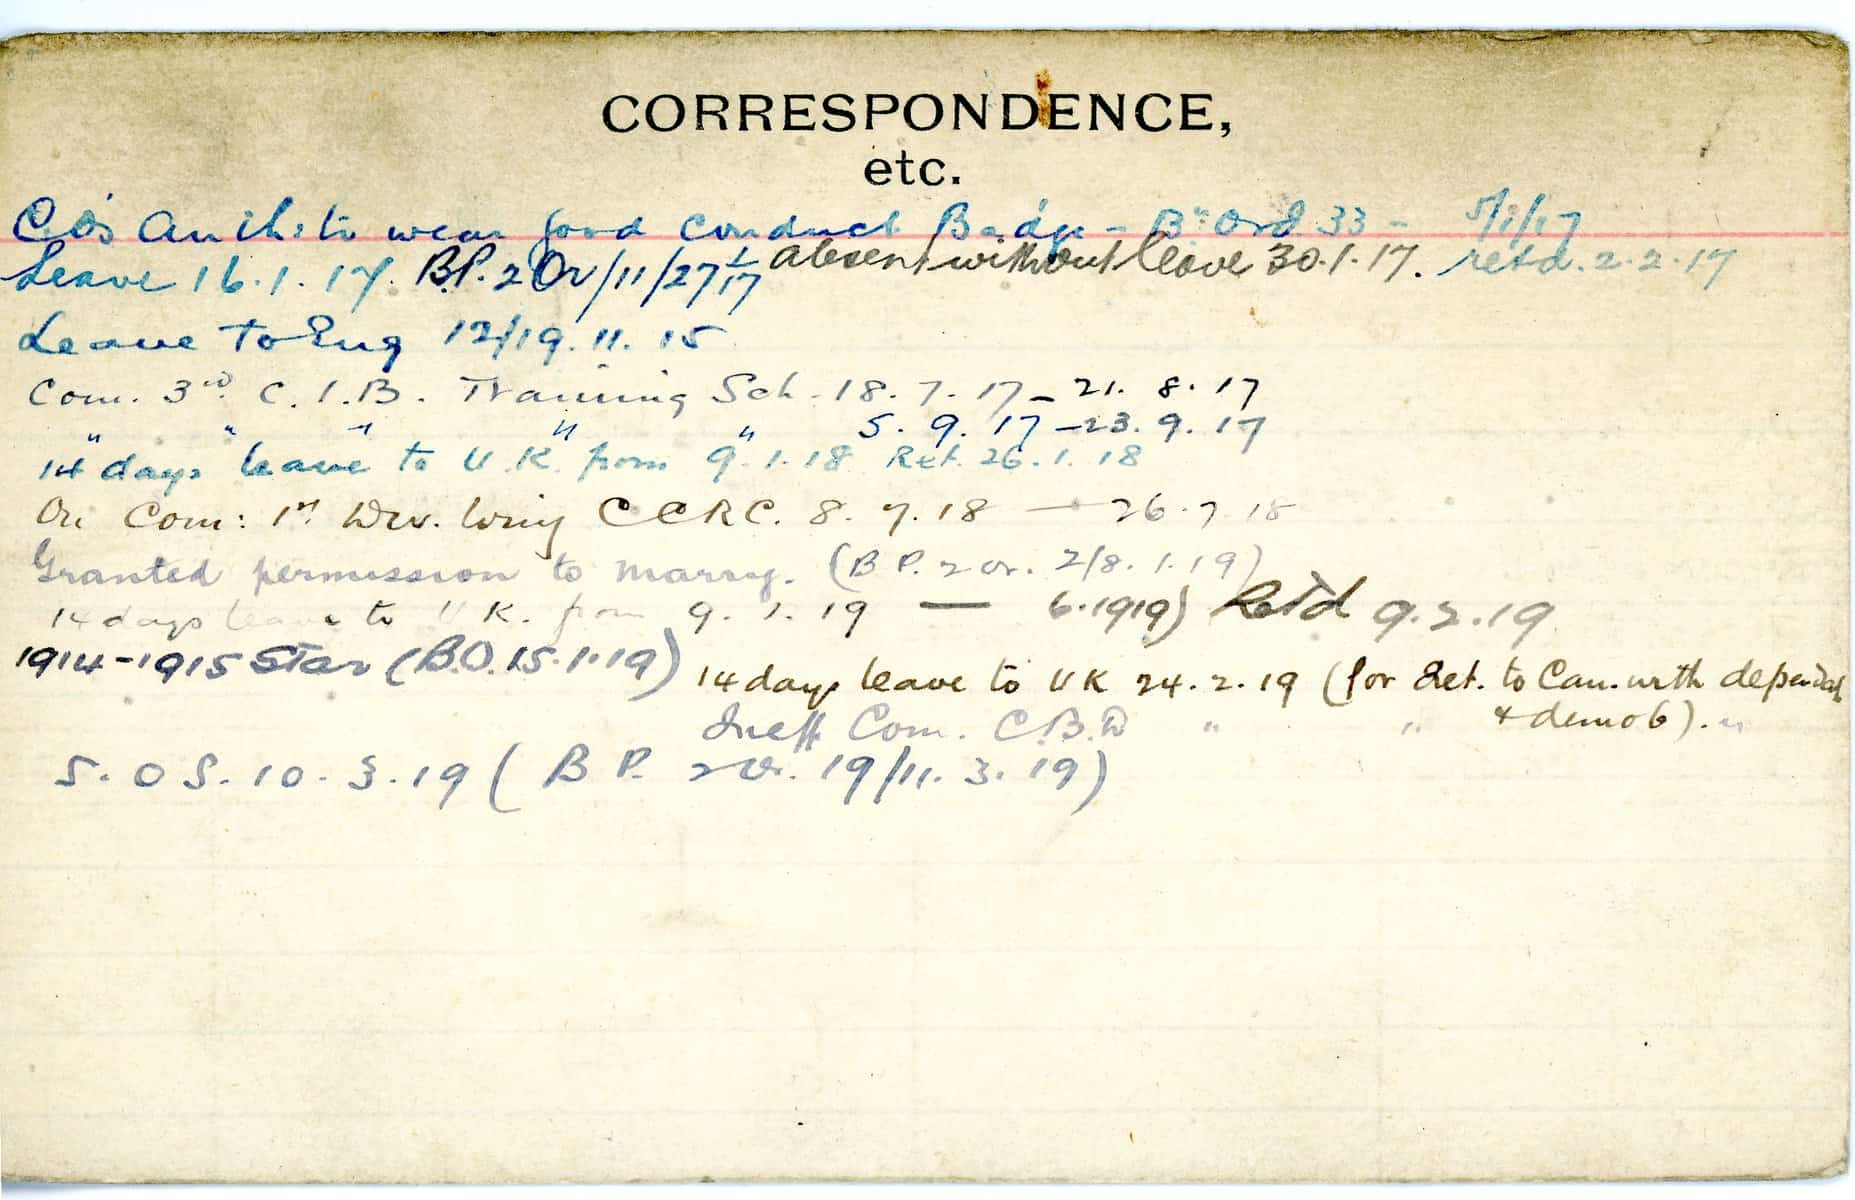 CORRESPONDENCE,
etc.
C.O's Auth: to wear good conduct Badge - Bn Ord 33 - 5/1/17
Leave 16.1.17. B.P. 2 Or/11/27 1/17 absent without leave 30.1.17. retd. 2.2.17
Leave to Eng 12/19.11.15
Com. 3rd C.I.B. Training Sch. 18.7.17 - 21.8.17
" " " " " 5.9.17 - 23.9.17
14 days leave to U.K. from 9.1.18 Ret. 26.1.18
On Com: 1st Div. Wing CCRC. 8.7.18 — 26.7.18
Granted permission to marry. (B P. 2 or. 2/8.1.19)
14 days leave to U K. from 9.1.19 — 6.1919) Retd 9.2.19
1914-1915 Star (B.O. 15.1.19) 14 days leave to UK 24.2.19 (for Ret. to Can. with dependents
& demob).
Ineff Com. C.B.D " " "
S.O S. 10.3.19 (B P. 2 Or. 19/11.3.19)